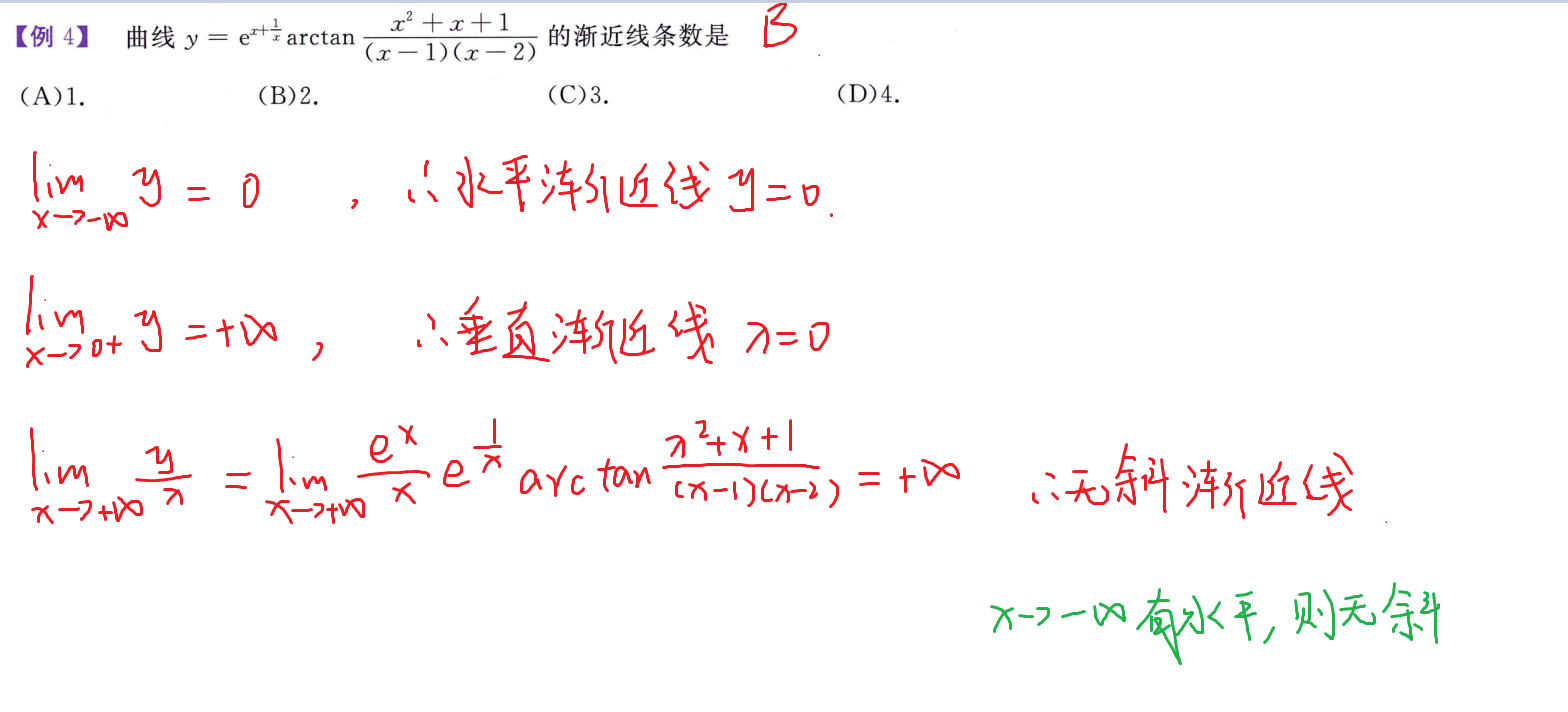 【例 4】 曲线 y = e^{x+\frac{1}{x}} arctan \frac{x^2+x+1}{(x-1)(x-2)} 的渐近线条数是 B
(A)1. (B)2. (C)3. (D)4.
lim_{x→-∞} y = 0 , ∴水平渐近线 y=0.
lim_{x→0+} y = +∞ , ∴垂直渐近线 x=0
lim_{x→+∞} \frac{y}{x} = lim_{x→+∞} \frac{e^x}{x} e^{\frac{1}{x}} arctan \frac{x^2+x+1}{(x-1)(x-2)} = +∞ ∴无斜渐近线
x→-∞ 有水平, 则无斜